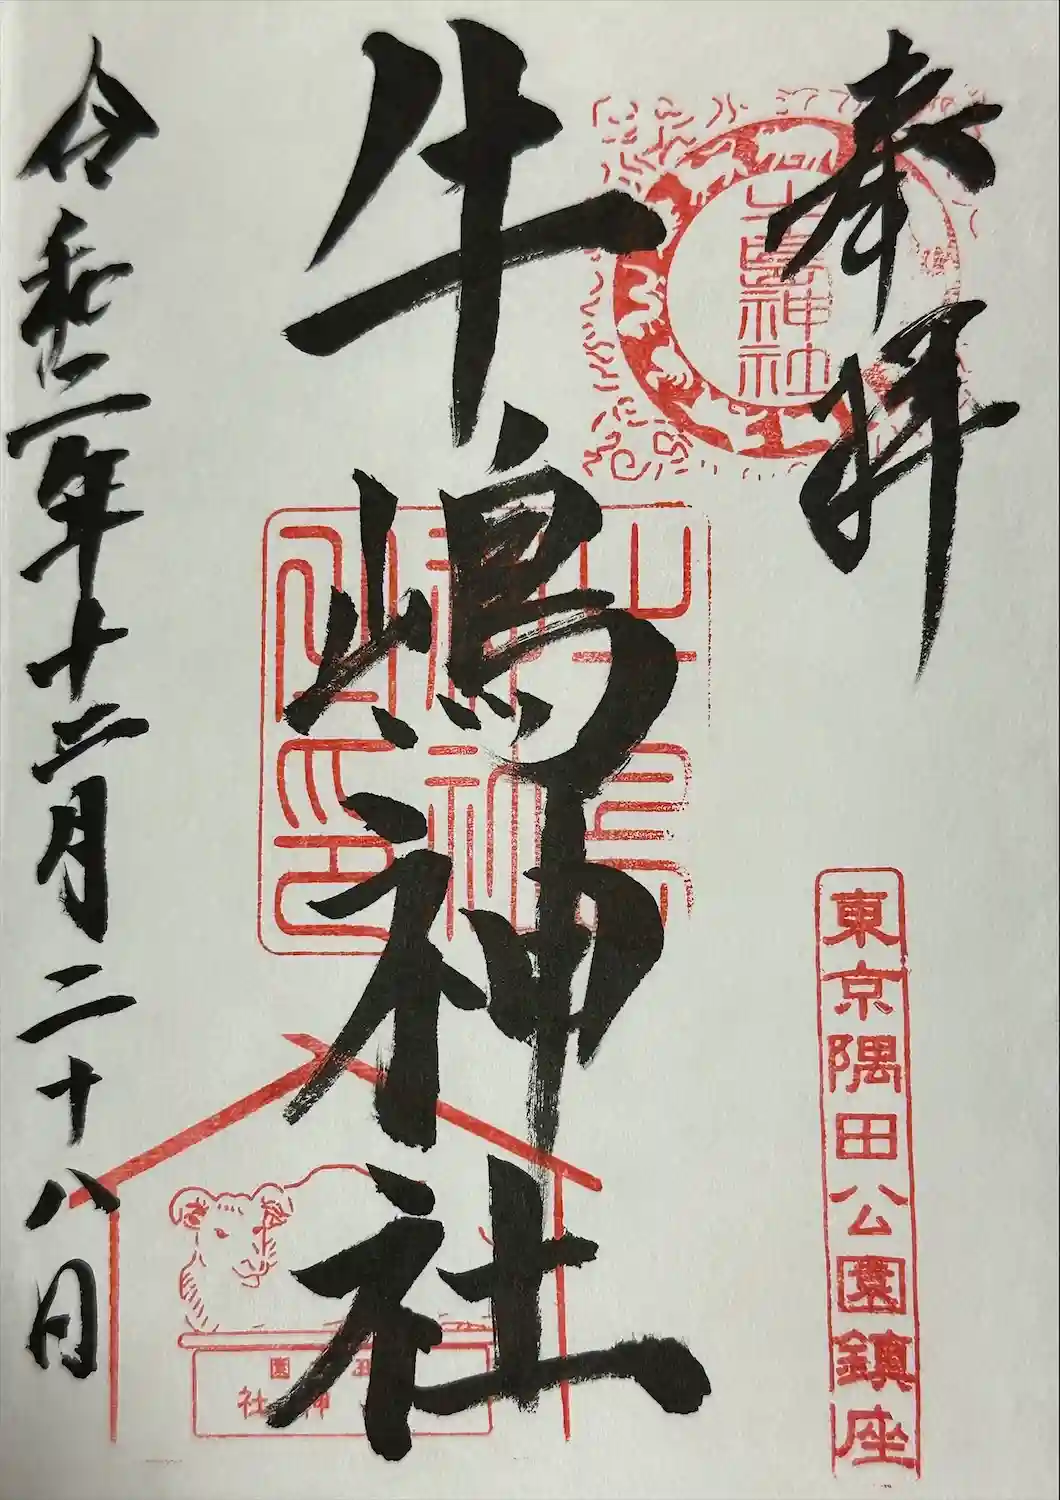 奉拝
牛嶋神社
令和二年十二月二十八日
東京隅田公園鎮座
神社